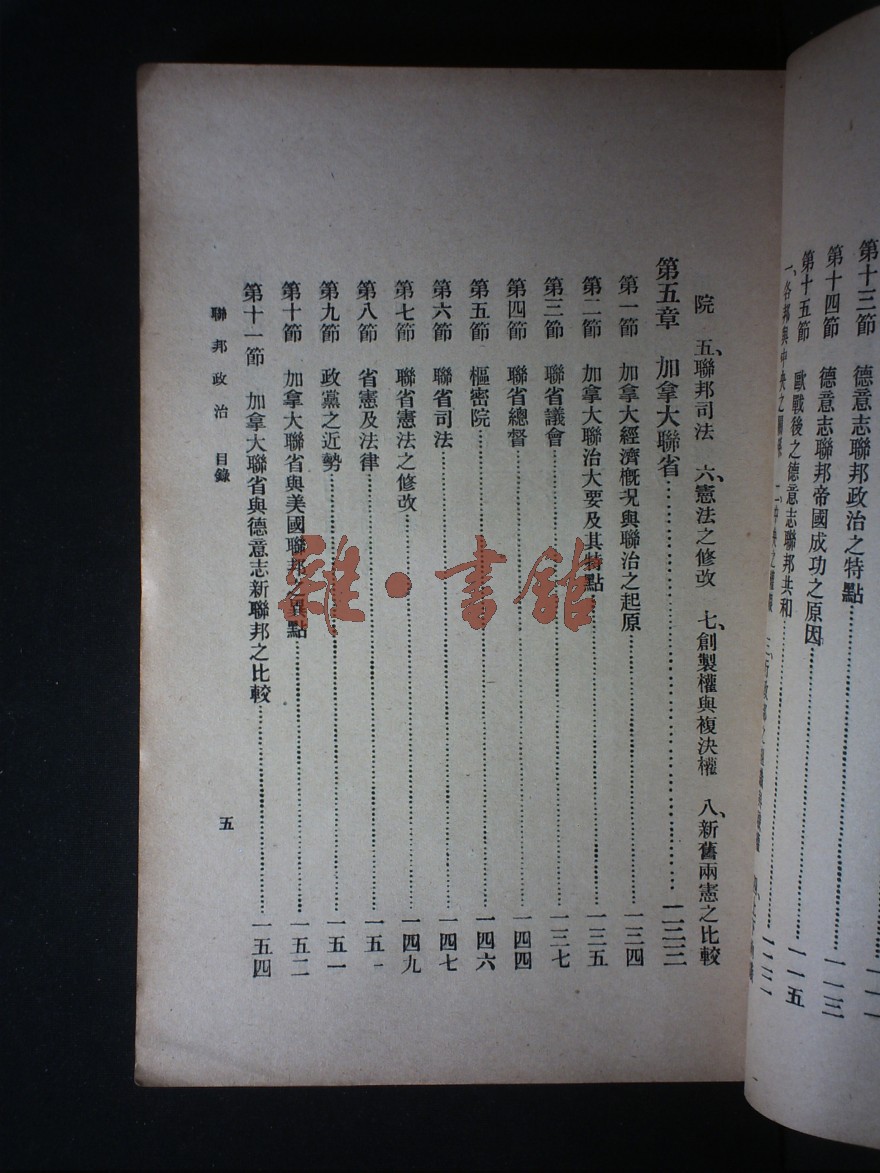 第十三節 德意志聯邦政治之特點
第十四節 德意志聯邦帝國成功之原因 一一三
第十五節 歐戰後之德意志聯邦共和 一一五
一、各邦與中央之關係 二、中央之 三、行政部之
院 五、聯邦司法 六、憲法之修改 七、創製權與複決權 八、新舊兩憲之比較
第五章 加拿大聯省 一三三
第一節 加拿大經濟概况與聯治之起原 一三四
第二節 加拿大聯治大要及其特點 一三五
第三節 聯省議會 一三七
第四節 聯省總督 一四四
第五節 樞密院 一四六
第六節 聯省司法 一四七
第七節 聯省憲法之修改 一四九
第八節 省憲及法律 一五一
第九節 政黨之近勢 一五一
第十節 加拿大聯省與美國聯邦之異點 一五二
第十一節 加拿大聯省與德意志新聯邦之比較 一五四
聯邦政治 目錄 五
雜·書館